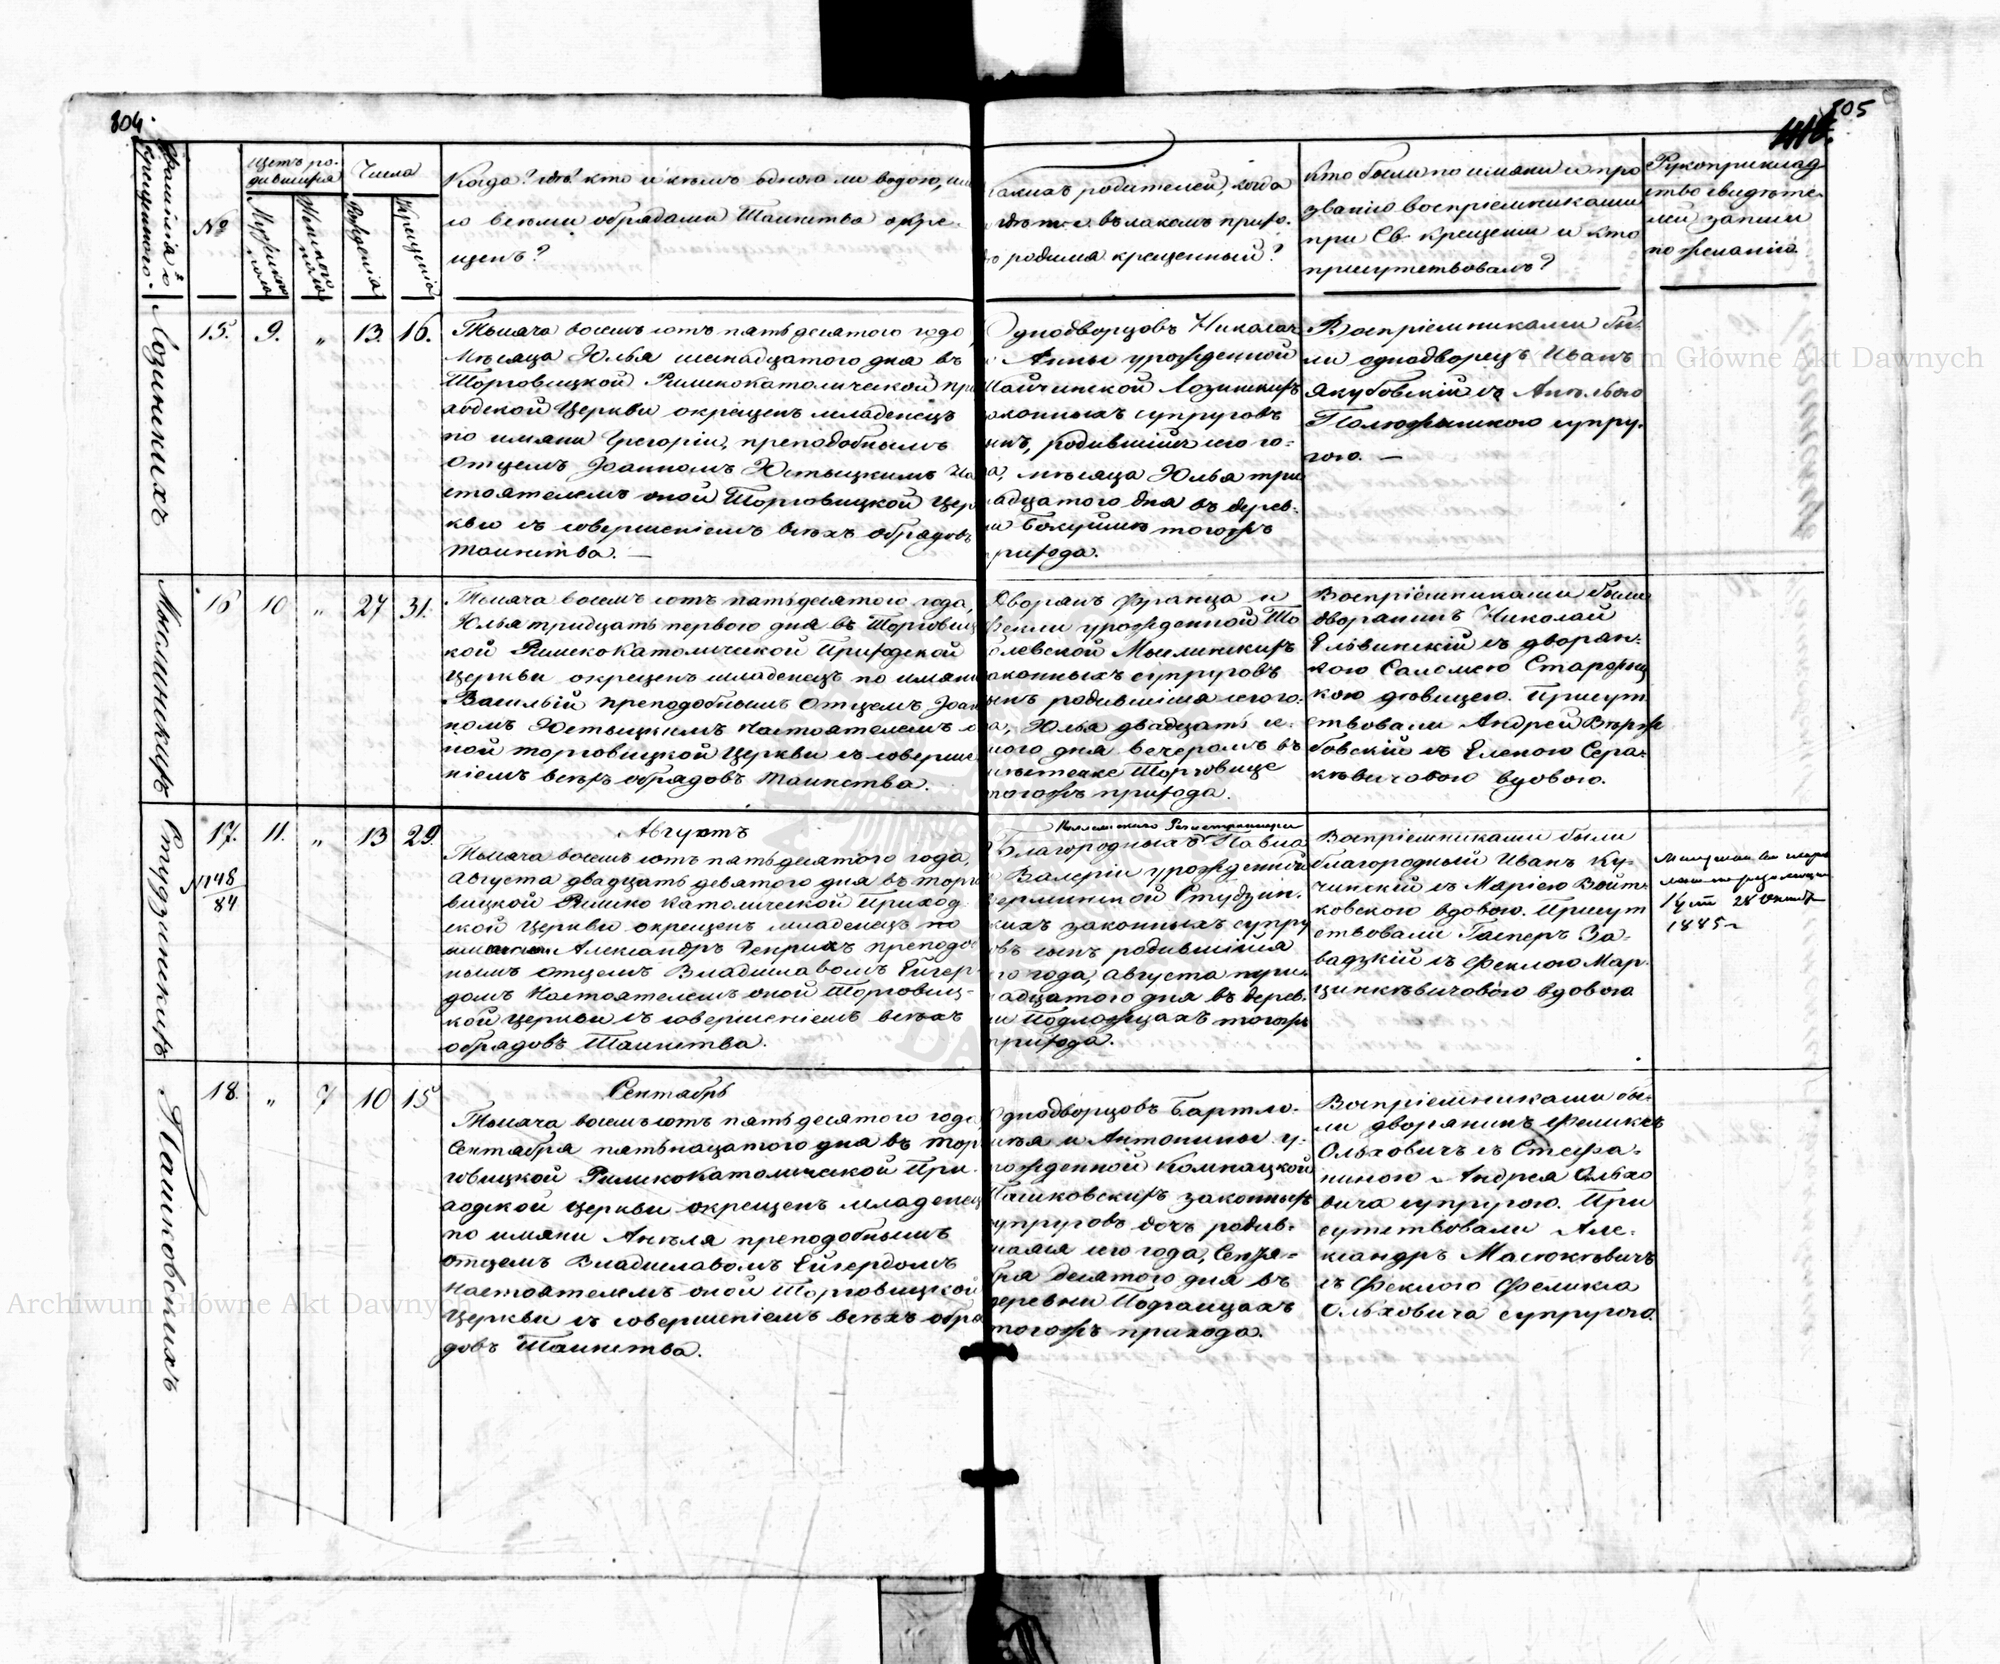 804.
805
Фамилія о
крещеннаго.
№
Щетъ ро-
дившихся
Мужики
полю
Женскій
полю
Числа
Рожденія
Крещенія
Когда? гдѣ? кто и кѣмъ одною ли водою, или
со всѣми обрядами Таинства окре-
щенъ?
Какихъ родителей, когда
и гдѣ т. е. въ какомъ прихо-
дѣ родился крещенный?
Кто были по имяни и про
званію воспріемниками
при Св. крещеніи и кто
присутствовалъ?
Рукоприклад
ство свидѣте-
лей записи
по желанію
Лозинскихъ
15. 9. " 13. 16.
Тысяча восемъ сотъ пятьдесятого года
Мѣсяца Юлья шеснадцатого дня въ
Торговицкой Римскокатолической при
ходской Церкви окрещенъ младенецъ
по имяни Григорій, преподобнымъ
Отцемъ Іоанномъ Устыцкимъ На
стоятелемъ оной Торговицкой Цер
кви съ совершеніемъ всѣхъ обрядовъ
таинства. —
Однодворцовъ Николая
и Анны урожденной
Лозинскихъ
законныхъ супруговъ
сынъ, родившійся сего го-
да, мѣсяца Юлья три
надцатого дня въ дерев-
ни Бокуймѣ тогожъ
прихода.
Воспріемниками бы-
ли однодворецъ Иванъ
Якубовскій съ Анѣлью
супру-
гою. —
Мыслинскихъ
16 10 " 27 31.
Тысяча восемъ сотъ пятьдесятого года,
Юлья тридцать перваго дня въ Торговиц
кой Римскокатолической Приходской
Церкви окрещенъ младенецъ по имяни
Василій преподобнымъ Отцемъ Іоан
номъ Устыцкимъ Настоятелемъ о
ной торговицкой Церкви съ соверше
ніемъ всѣхъ обрядовъ таинства.
Дворянъ Франца и
Теклы урожденной
Мыслинскихъ
законныхъ супруговъ
сынъ родившійся сего го-
да, Юлья двадцать се-
дмого дня вечеромъ въ
мѣстечкѣ Торговице
тогожъ прихода.
Воспріемниками были
дворянинъ Николай
съ дворян-
кою Саломеею
кою дѣвицею. Присут
ствовали Андрей
съ Еленою Сера-
кѣвичовою вдовою.
Студзинскихъ
17. 11. " 13 29.
№ 148
84
Августъ
Тысяча восемъ сотъ пятьдесятого года,
Августа двадцать девятого дня въ торго
вицкой Римско католической приход
ской Церкви окрещенъ младенецъ по
имяни Александръ Генрихъ преподоб
нымъ отцемъ Владиславомъ Ейгер-
домъ Настоятелемъ оной Торговиц-
кой церкви съ совершеніемъ всѣхъ
обрядовъ Таинства.
Коллежскаго Регистратора
Благородныхъ Павла
и Валеріи урожденной
Студзин-
скихъ законныхъ супру
говъ сынъ родившійся
сего года, августа три-
надцатого дня въ дерев-
ни Подложцахъ тогожъ
прихода.
Воспріемниками были
благородный Иванъ Ку-
чинскій съ Маріею Войт-
ковскою вдовою. Присут
ствовали Гасперъ За-
вадзкій съ Феклою Мар-
цинкѣвичовою вдовою
28 Октября
1885 г.
Пашковскихъ
18. " 7 10 15
Сентябрь
Тысяча восемъ сотъ пятьдесятого года,
Сентября пятьнацатого дня въ тор
говицкой Римскокатолической При
ходской Церкви окрещенъ младенец
по имяни Анѣля преподобнымъ
отцемъ Владиславомъ Ейгердомъ
Настоятелемъ оной Торговицкой
Церкви съ совершеніемъ всѣхъ обря
довъ Таинства.
Однодворцовъ Бартло-
мѣя и Антонины у-
рожденной
Пашковскихъ законныхъ
супруговъ дочь родив-
шаяся сего года, Сентя-
бря десятого дня въ
деревни Подгайцахъ
тогожъ прихода.
Воспріемниками бы-
ли дворянинъ Феликсъ
Ольховичъ съ Стефа-
ниною Андрея Ольхо
вича супругою. При
сутствовали Але-
ксандръ Масюкѣвичъ
съ Феклою Феликса
Ольховича супругою.
Archiwum Główne Akt Dawnych
Archiwum Główne Akt Dawnych